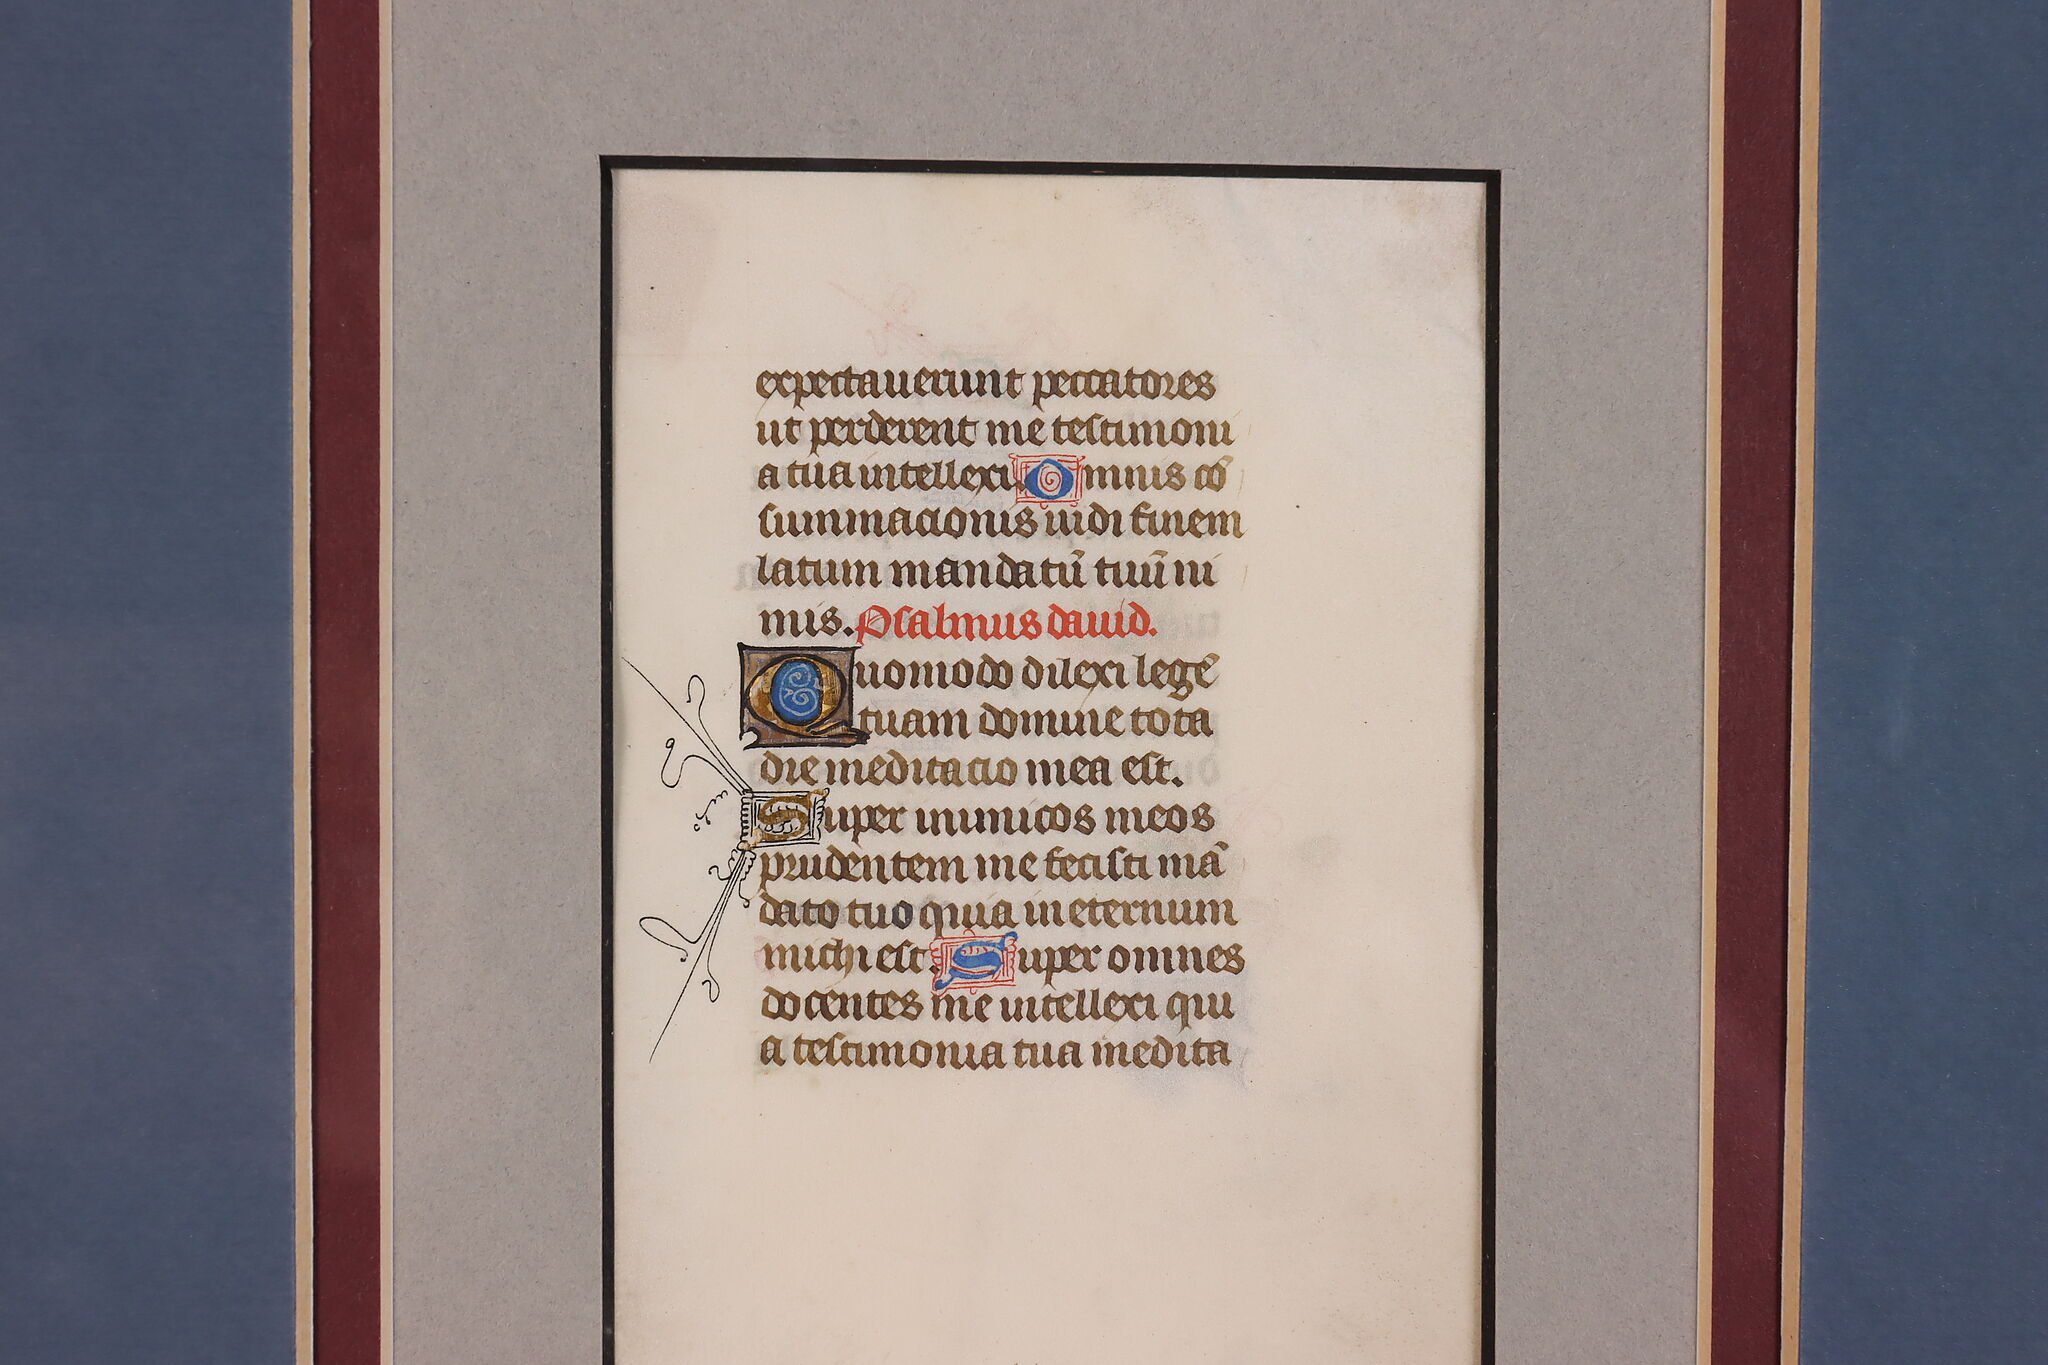 expectauerunt peccatores
ut perderent me testimoni
a tua intellexi. Omnis cō
summacionis uidi finem
latum mandatū tuū ni
mis. Psalmus dauid.
Quomodo dilexi legē
tuam domine tota
die meditacio mea est.
Super inimicos meos
prudentem me fecisti mā
dato tuo quia in eternum
michi est. Super omnes
docentes me intellexi qui
a testimonia tua medita